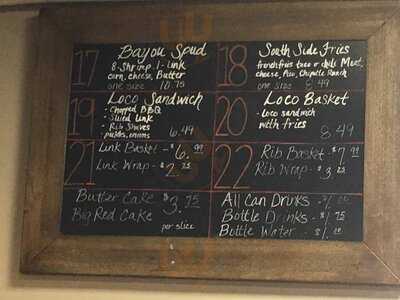 17 Bayou Spud
8-Shrimp, 1-Link
corn, cheese, Butter
one size 10.75
18 South Side Fries
french fries taco or chili Meat,
cheese, Pico, Chipotle Ranch
one size 8.49
19 Loco Sandwich
- Chopped BBQ
- Sliced Link
- Rib Shaves
pickles, onions 6.49
20 Loco Basket
- Loco sandwich
with fries
8.49
21 Link Basket - $6.99
Link Wrap - $2.75
22 Rib Basket - $7.99
Rib Wrap - $3.25
Butter Cake $3.75
Big Red Cake
per slice
All Can Drinks -
Bottle Drinks - $1.75
Bottle Water - $1.00